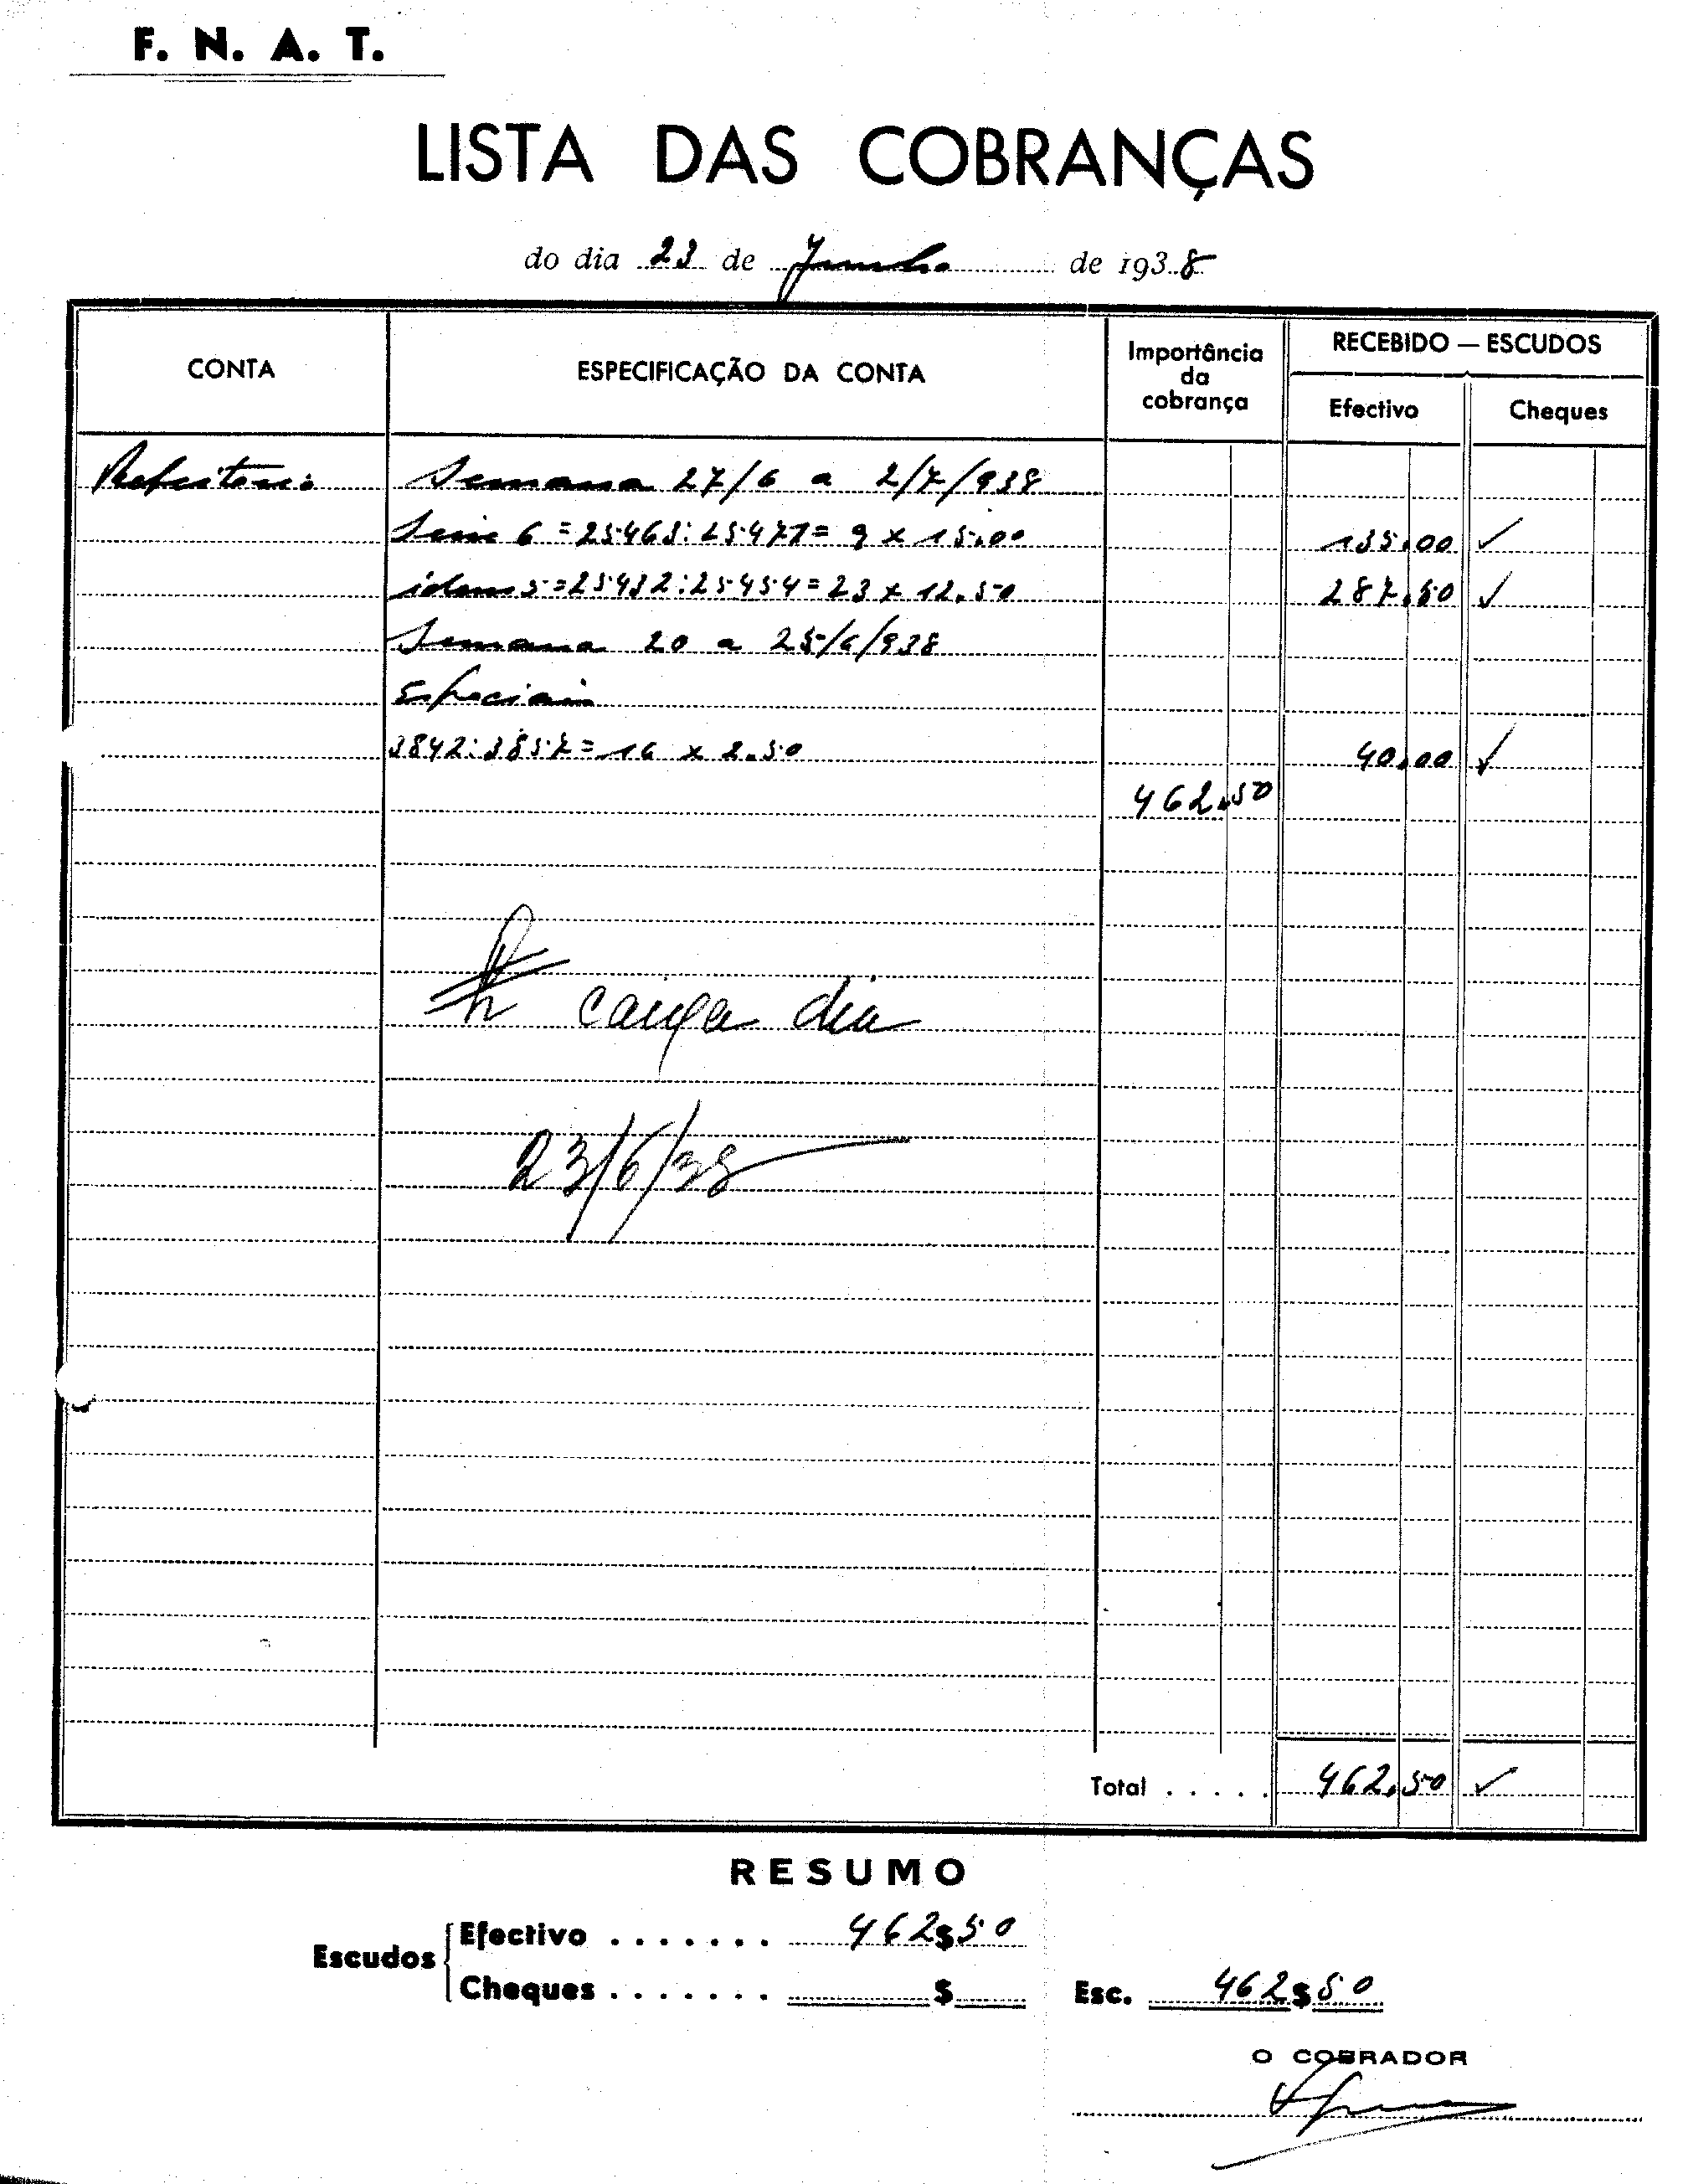 F. N. A. T.
LISTA DAS COBRANÇAS
do dia 23 de Junho de 1938
CONTA ESPECIFICAÇÃO DA CONTA Importância da cobrança RECEBIDO — ESCUDOS
Efectivo Cheques
Refeitorio Semana 27/6 a 2/7/938
Serie 6 = 25463:25471 = 9 x 15.00 135.00 ✓
idem 5 = 25432:25454 = 23 x 12.50 287.50 ✓
Semana 20 a 25/6/938
Especiais
3842:3857 = 16 x 2.50 40.00 ✓
462.50
caixa dia
23/6/38
Total . . . . . 462.50 ✓
RESUMO
Escudos
Efectivo . . . . . . . 462$50
Cheques . . . . . . . $
Esc. 462$50
O COBRADOR